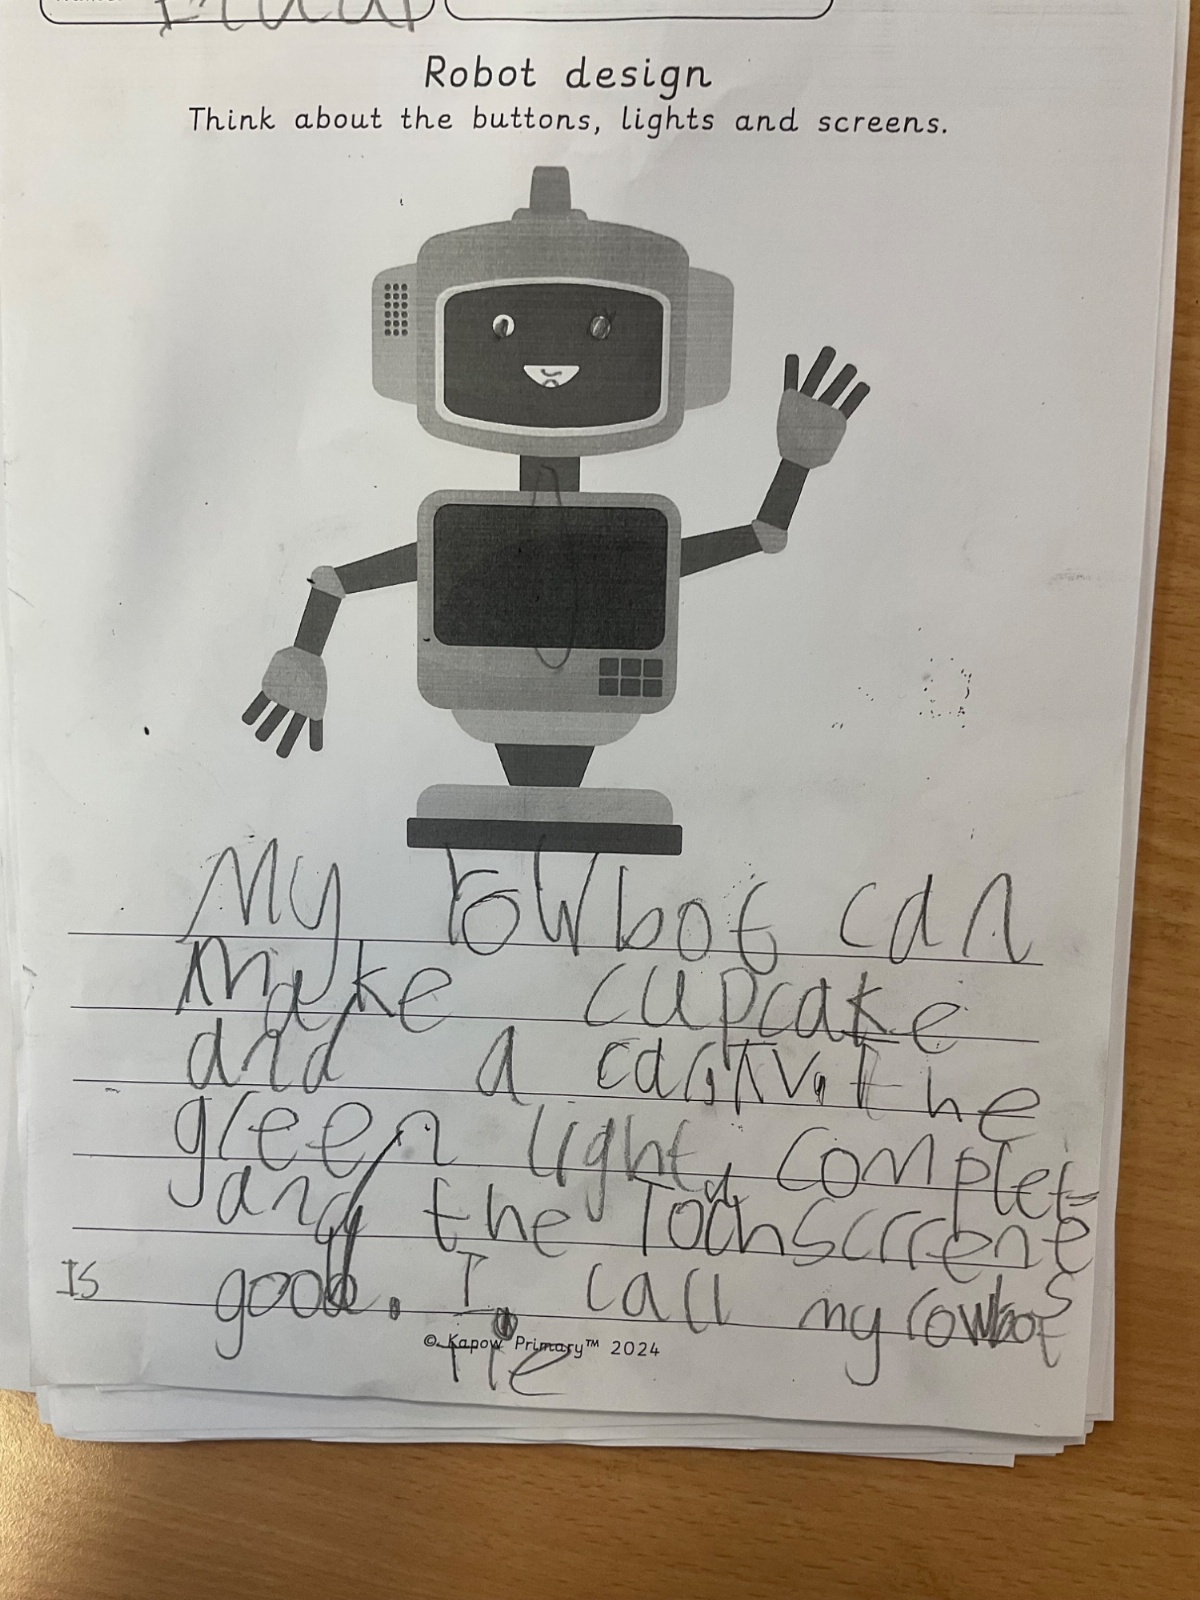 Robot design
Think about the buttons, lights and screens.
My rowbot can
make cupcake
and a the
green light complet
and the Tochscrrene
Is good. I call my rowbot
© Kapow Primary™ 2024